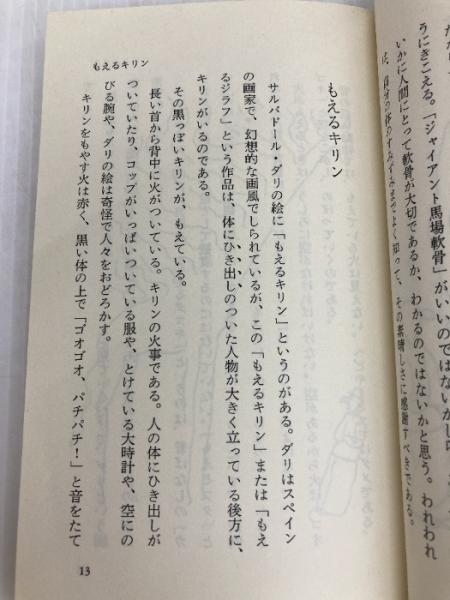 うにきこえる。「ジャイアント馬場軟骨」がいいのではないかし
いかに人間にとって軟骨が大切であるか、わかるのではないかと思う。われわれ
その素晴しさに感謝すべきである。
もえるキリン
もえるキリン
サルバドール・ダリの絵に「もえるキリン」というのがある。ダリはスペイン
の画家で、幻想的な画風でしられているが、この「もえるキリン」または「もえ
るジラフ」という作品は、体にひき出しのついた人物が大きく立っている後方に、
キリンがいるのである。
その黒っぽいキリンが、もえている。
長い首から背中に火がついている。キリンの火事である。人の体にひき出しが
ついていたり、コップがいっぱいついている服や、とけている大時計や、空にの
びる腕や、ダリの絵は奇怪で人々をおどろかす。
キリンをもやす火は赤く、黒い体の上で「ゴオゴオ、パチパチ!」と音をたて
13